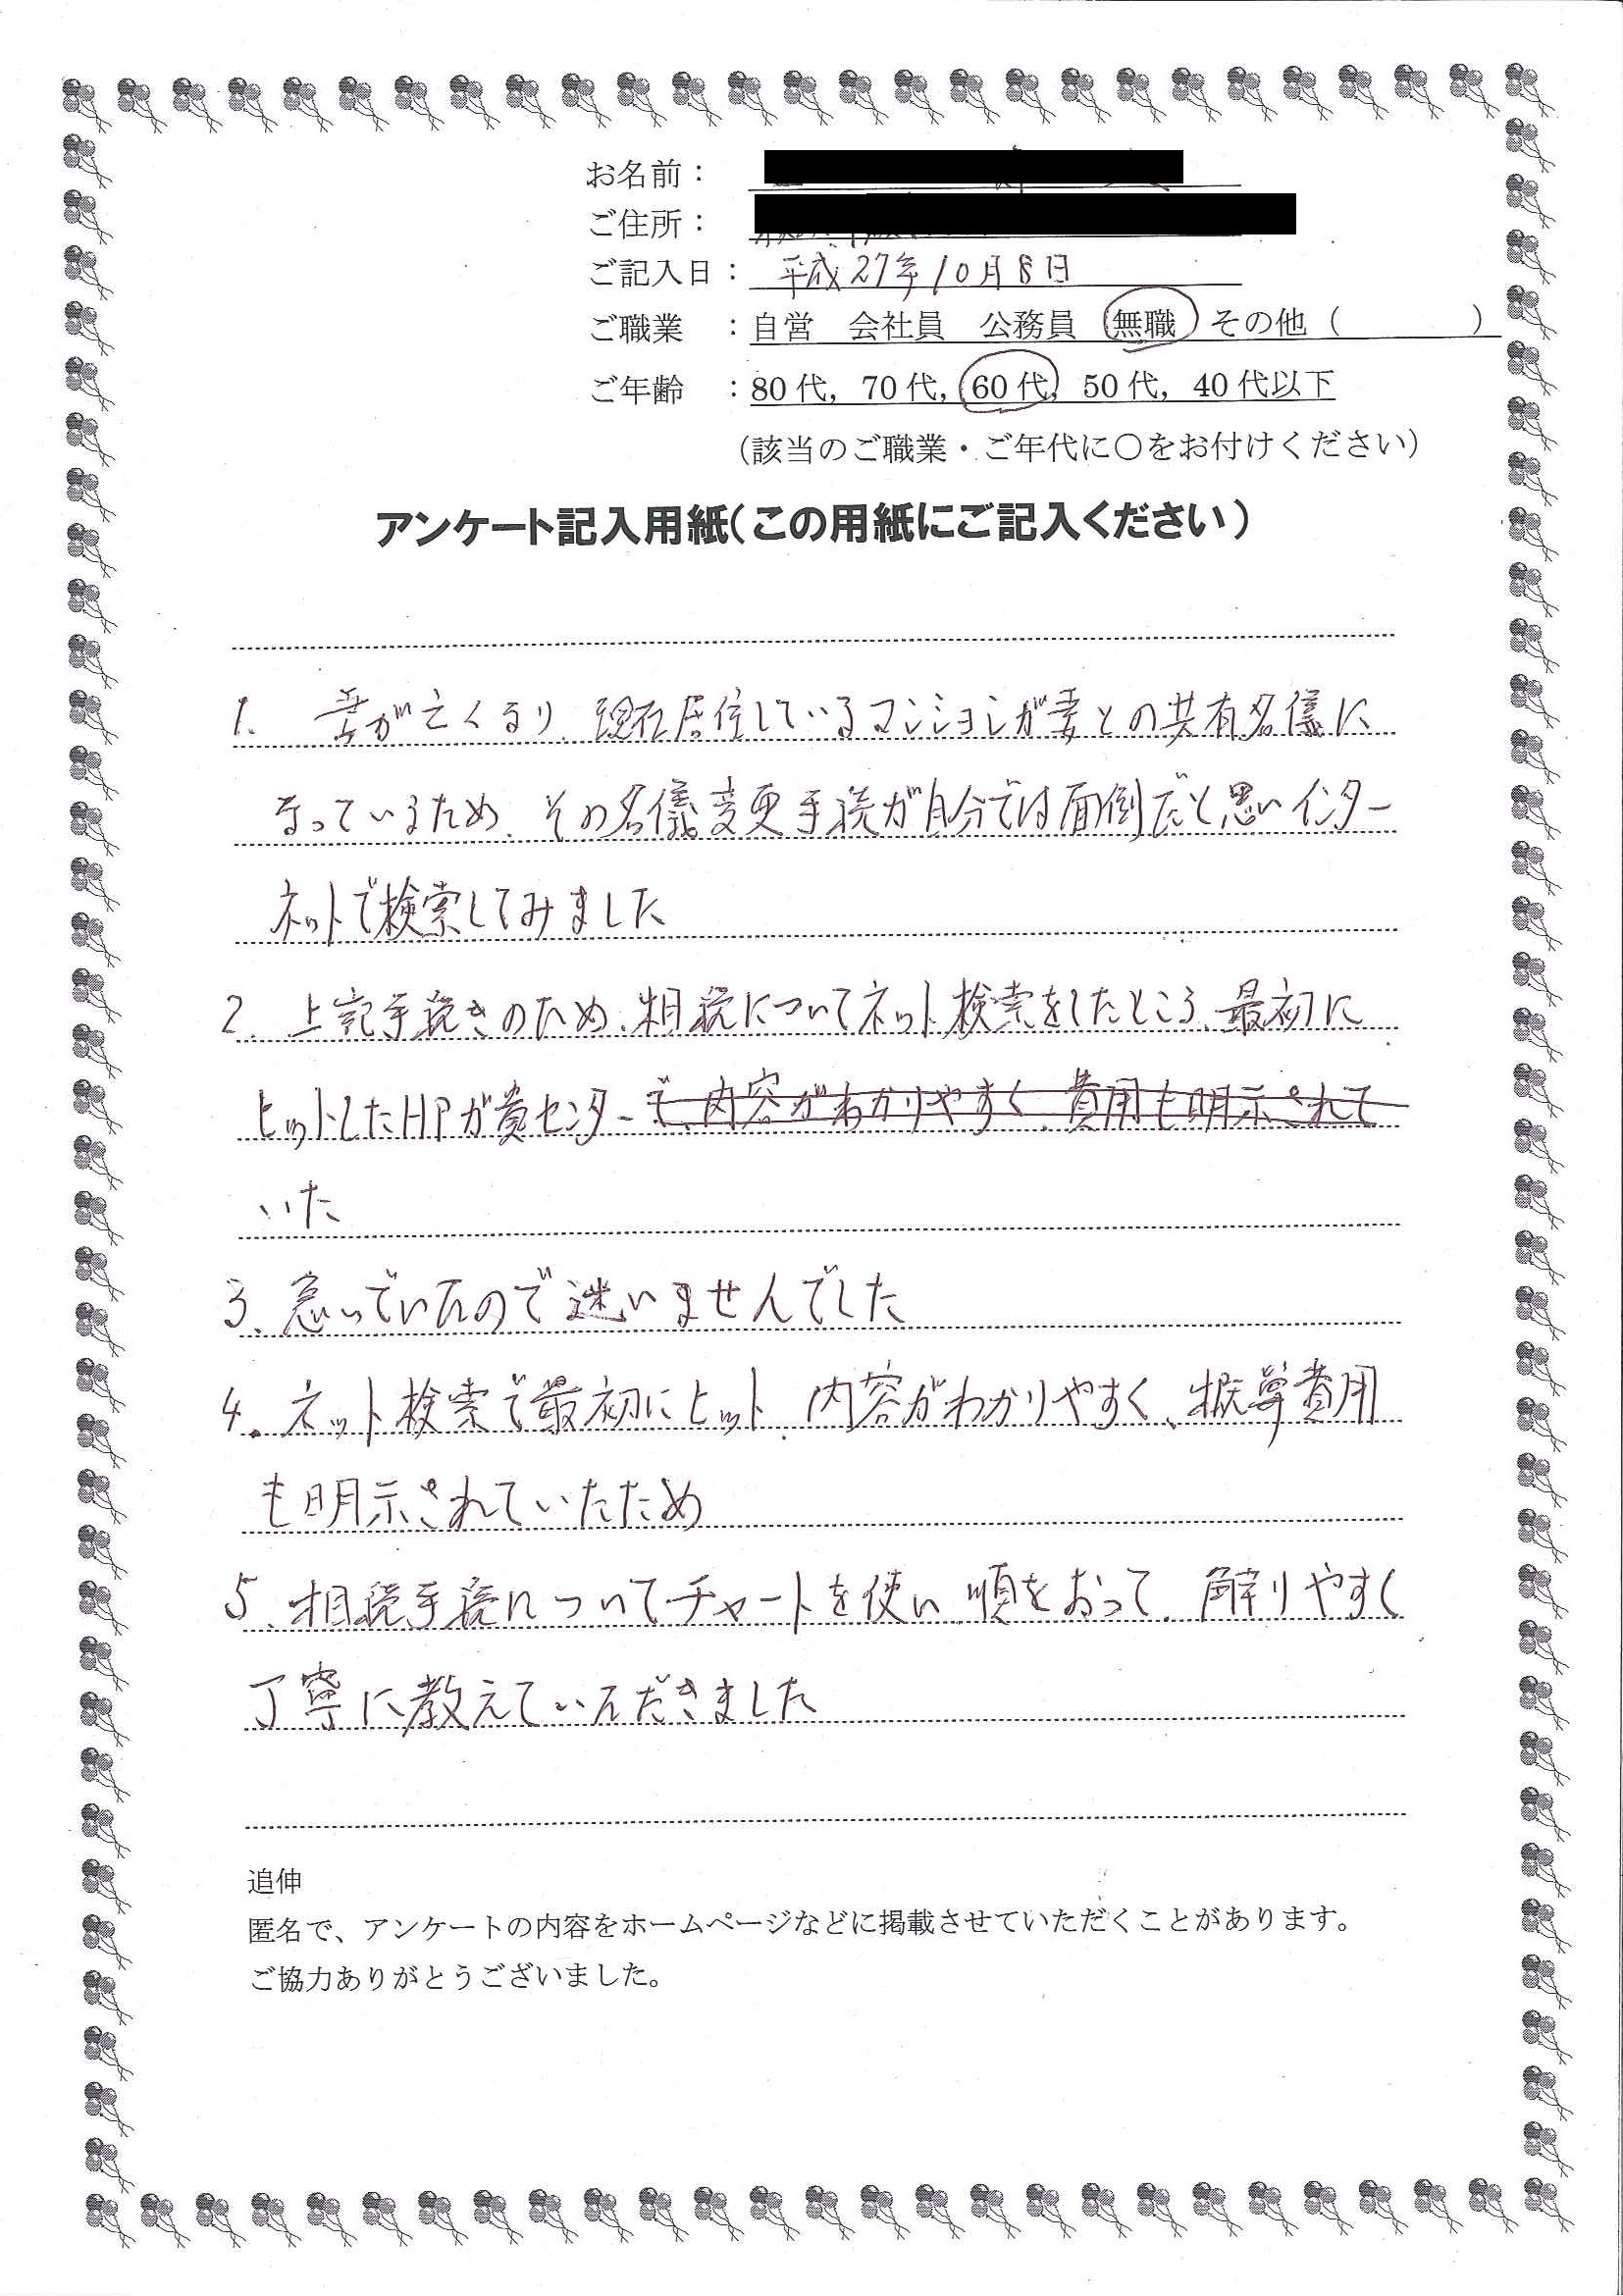 お名前：
ご住所：
ご記入日： 平成27年10月8日
ご職業 ：自営 会社員 公務員 無職 その他（ ）
ご年齢 ：80代，70代，60代，50代，40代以下
（該当のご職業・ご年代に○をお付けください）
アンケート記入用紙（この用紙にご記入ください）
1. 妻が亡くなり、現在居住しているマンションが妻との共有名儀に
なっているため、その名儀変更手続が自分では面倒だと思いインター
ネットで検索してみました
2. 上記手続きのため、相続についてネット検索をしたところ、最初に
ヒットしたHPが貴センターで、内容がわかりやすく、費用も明示されて
いた
3、急いでいたので迷いませんでした
4. ネット検索で最初にヒット、内容がわかりやすく、概算費用
も明示されていたため
5、相続手続についてチャートを使い、順をおって、解りやすく
丁寧に教えていただきました
追伸
匿名で、アンケートの内容をホームページなどに掲載させていただくことがあります。
ご協力ありがとうございました。